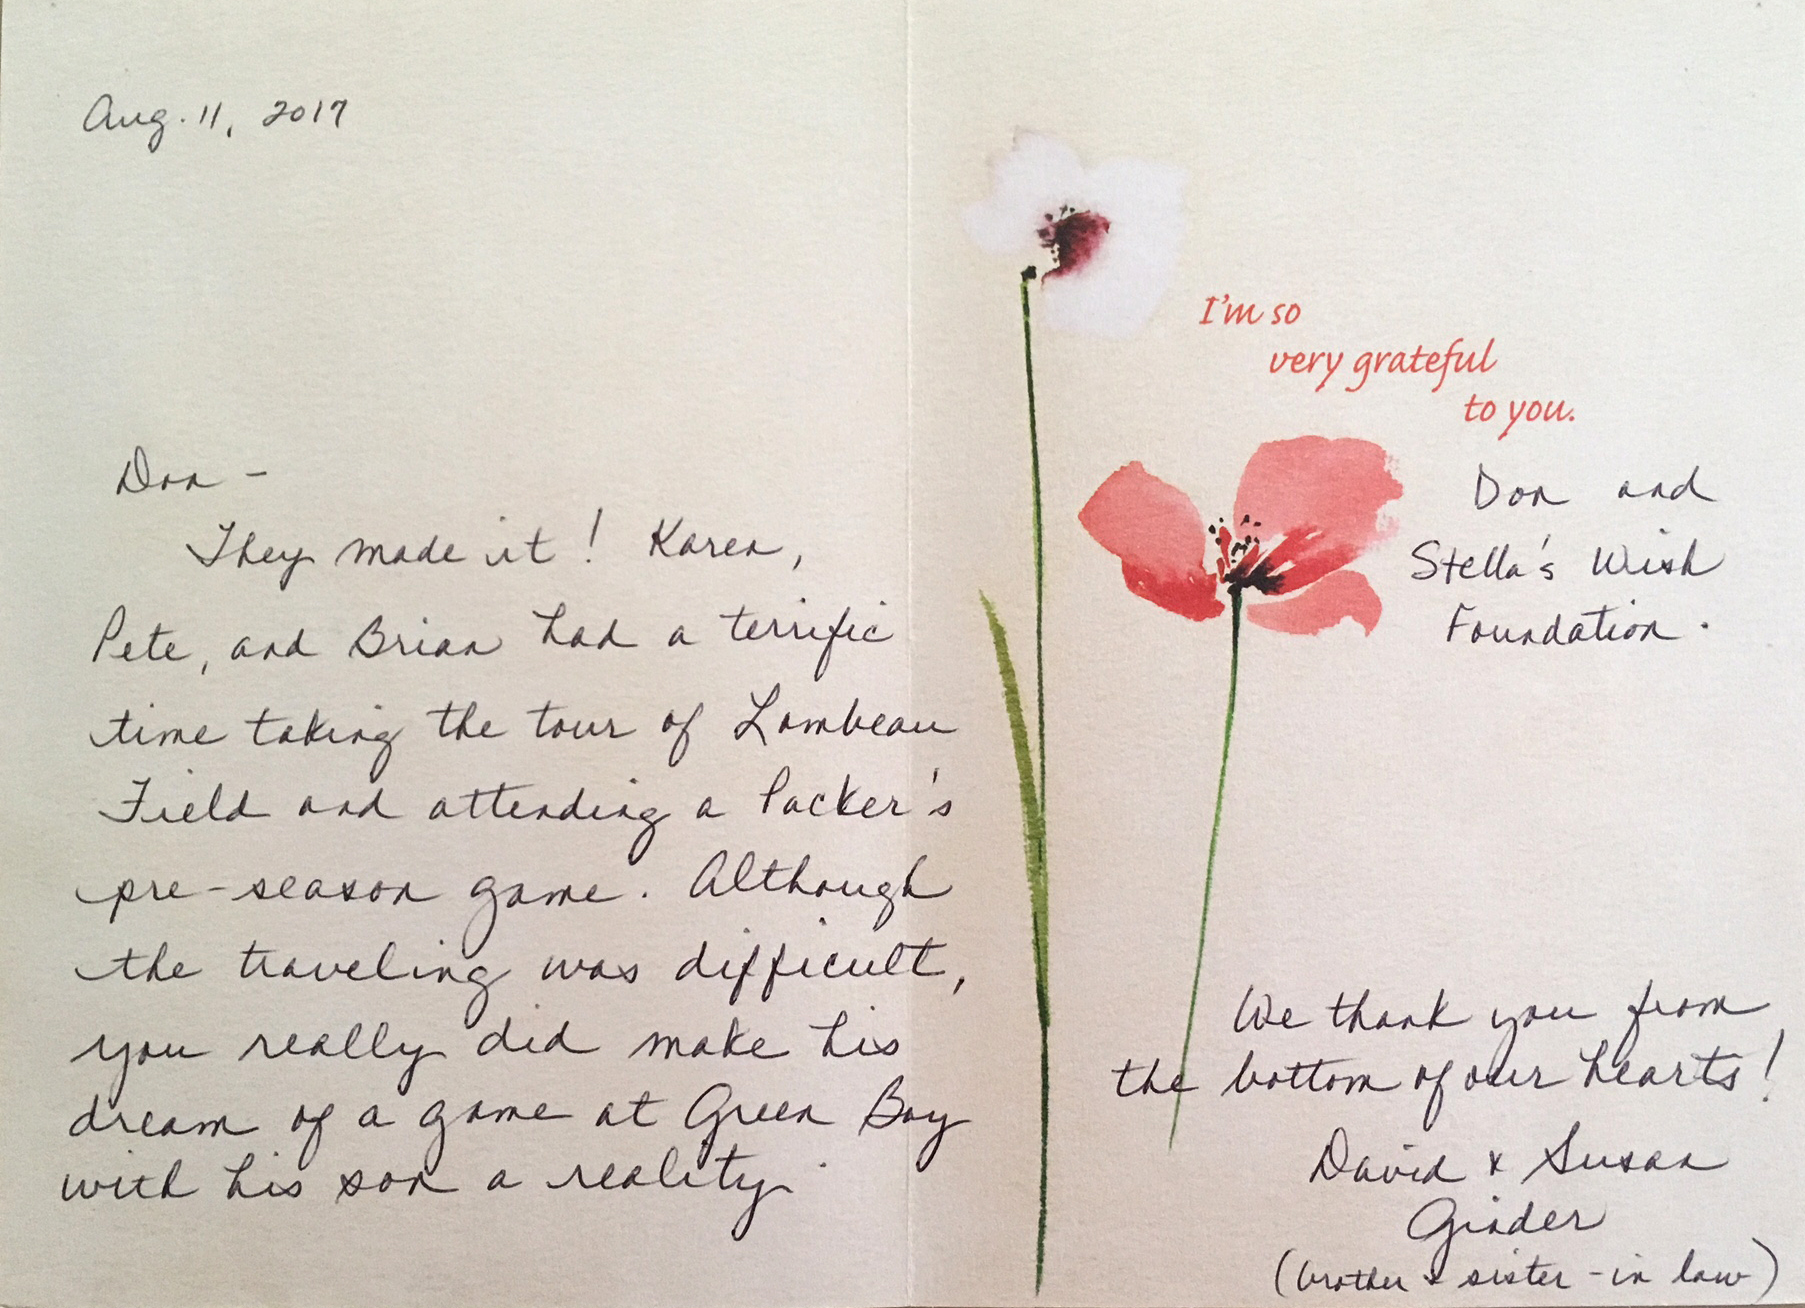 Aug. 11, 2017
Don -
They made it! Karen,
Pete, and Brian had a terrific
time taking the tour of Lambeau
Field and attending a Packer's
pre-season game. Although
the traveling was difficult,
you really did make his
dream of a game at Green Bay
with his son a reality.
I'm so
very grateful
to you.
Don and
Stella's Wish
Foundation.
We thank you from
the bottom of our hearts!
David & Susan
Ginder
(brother & sister-in law)